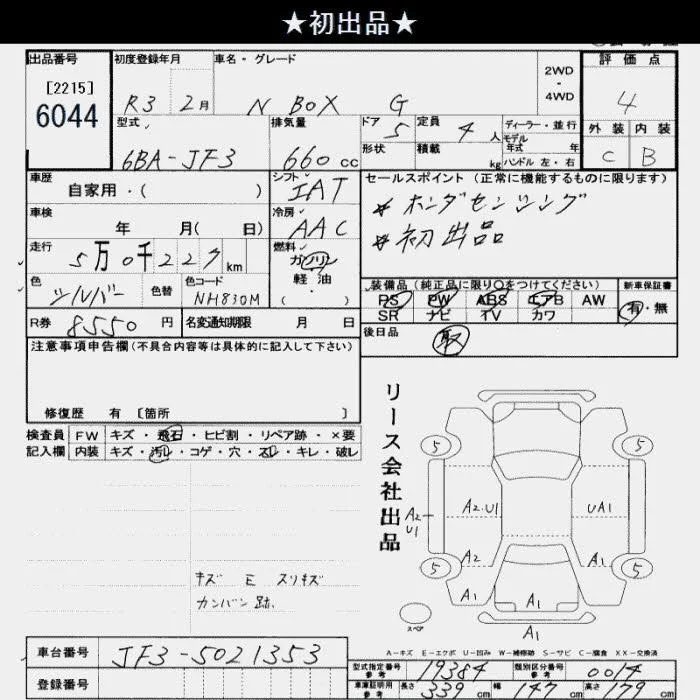 ★初出品★
出品番号 初度登録年月 車名・グレード 2WD・4WD 評価点
[2215]
6044
R3 2月 N BOX G 4
型式 排気量 ドア 定員 ディーラー・並行
6BA-JF3 660 cc 5 4 人 モデル年式 年
形状 積載 kg ハンドル 左・右
外装 内装
C B
車歴 シフト セールスポイント (正常に機能するものに限ります)
自家用・( ) IAT ホンダセンシング
車検 冷房 初出品
年 月( 日) AAC
走行 燃料
5万0千227km ガソリン
軽油
色 色替 色コード
シルバー NH830M
装備品 (純正品に限り〇をつけてください) 新車保証書
PS PW ABS エアB AW 有・無
SR ナビ TV カワ
R券 8550 円 名変通知期限 月 日
後日品 取
注意事項申告欄 (不具合内容等は具体的に記入して下さい)
修復歴 有 [箇所 ]
検査員 FW キズ・飛石・ヒビ割・リペア跡・×要
記入欄 内装 キズ・汚レ・コゲ・穴・スレ・キレ・破レ
リース会社出品
5 5
A2 U1 A2・U1 UA1
A2 A1
5 5
A1 A1 A1
A1
スペア
キズ E スリキズ
カンバン跡.
A-キズ E-エクボ U-凹み W-補修跡 S-サビ C-腐食 XX-交換済
車台番号 JF3-5021353
型式指定番号 参考 19384 類別区分番号 参考 0014
登録番号
車庫証明用 参考 長さ 339 cm 幅 147 cm 高さ 179 cm